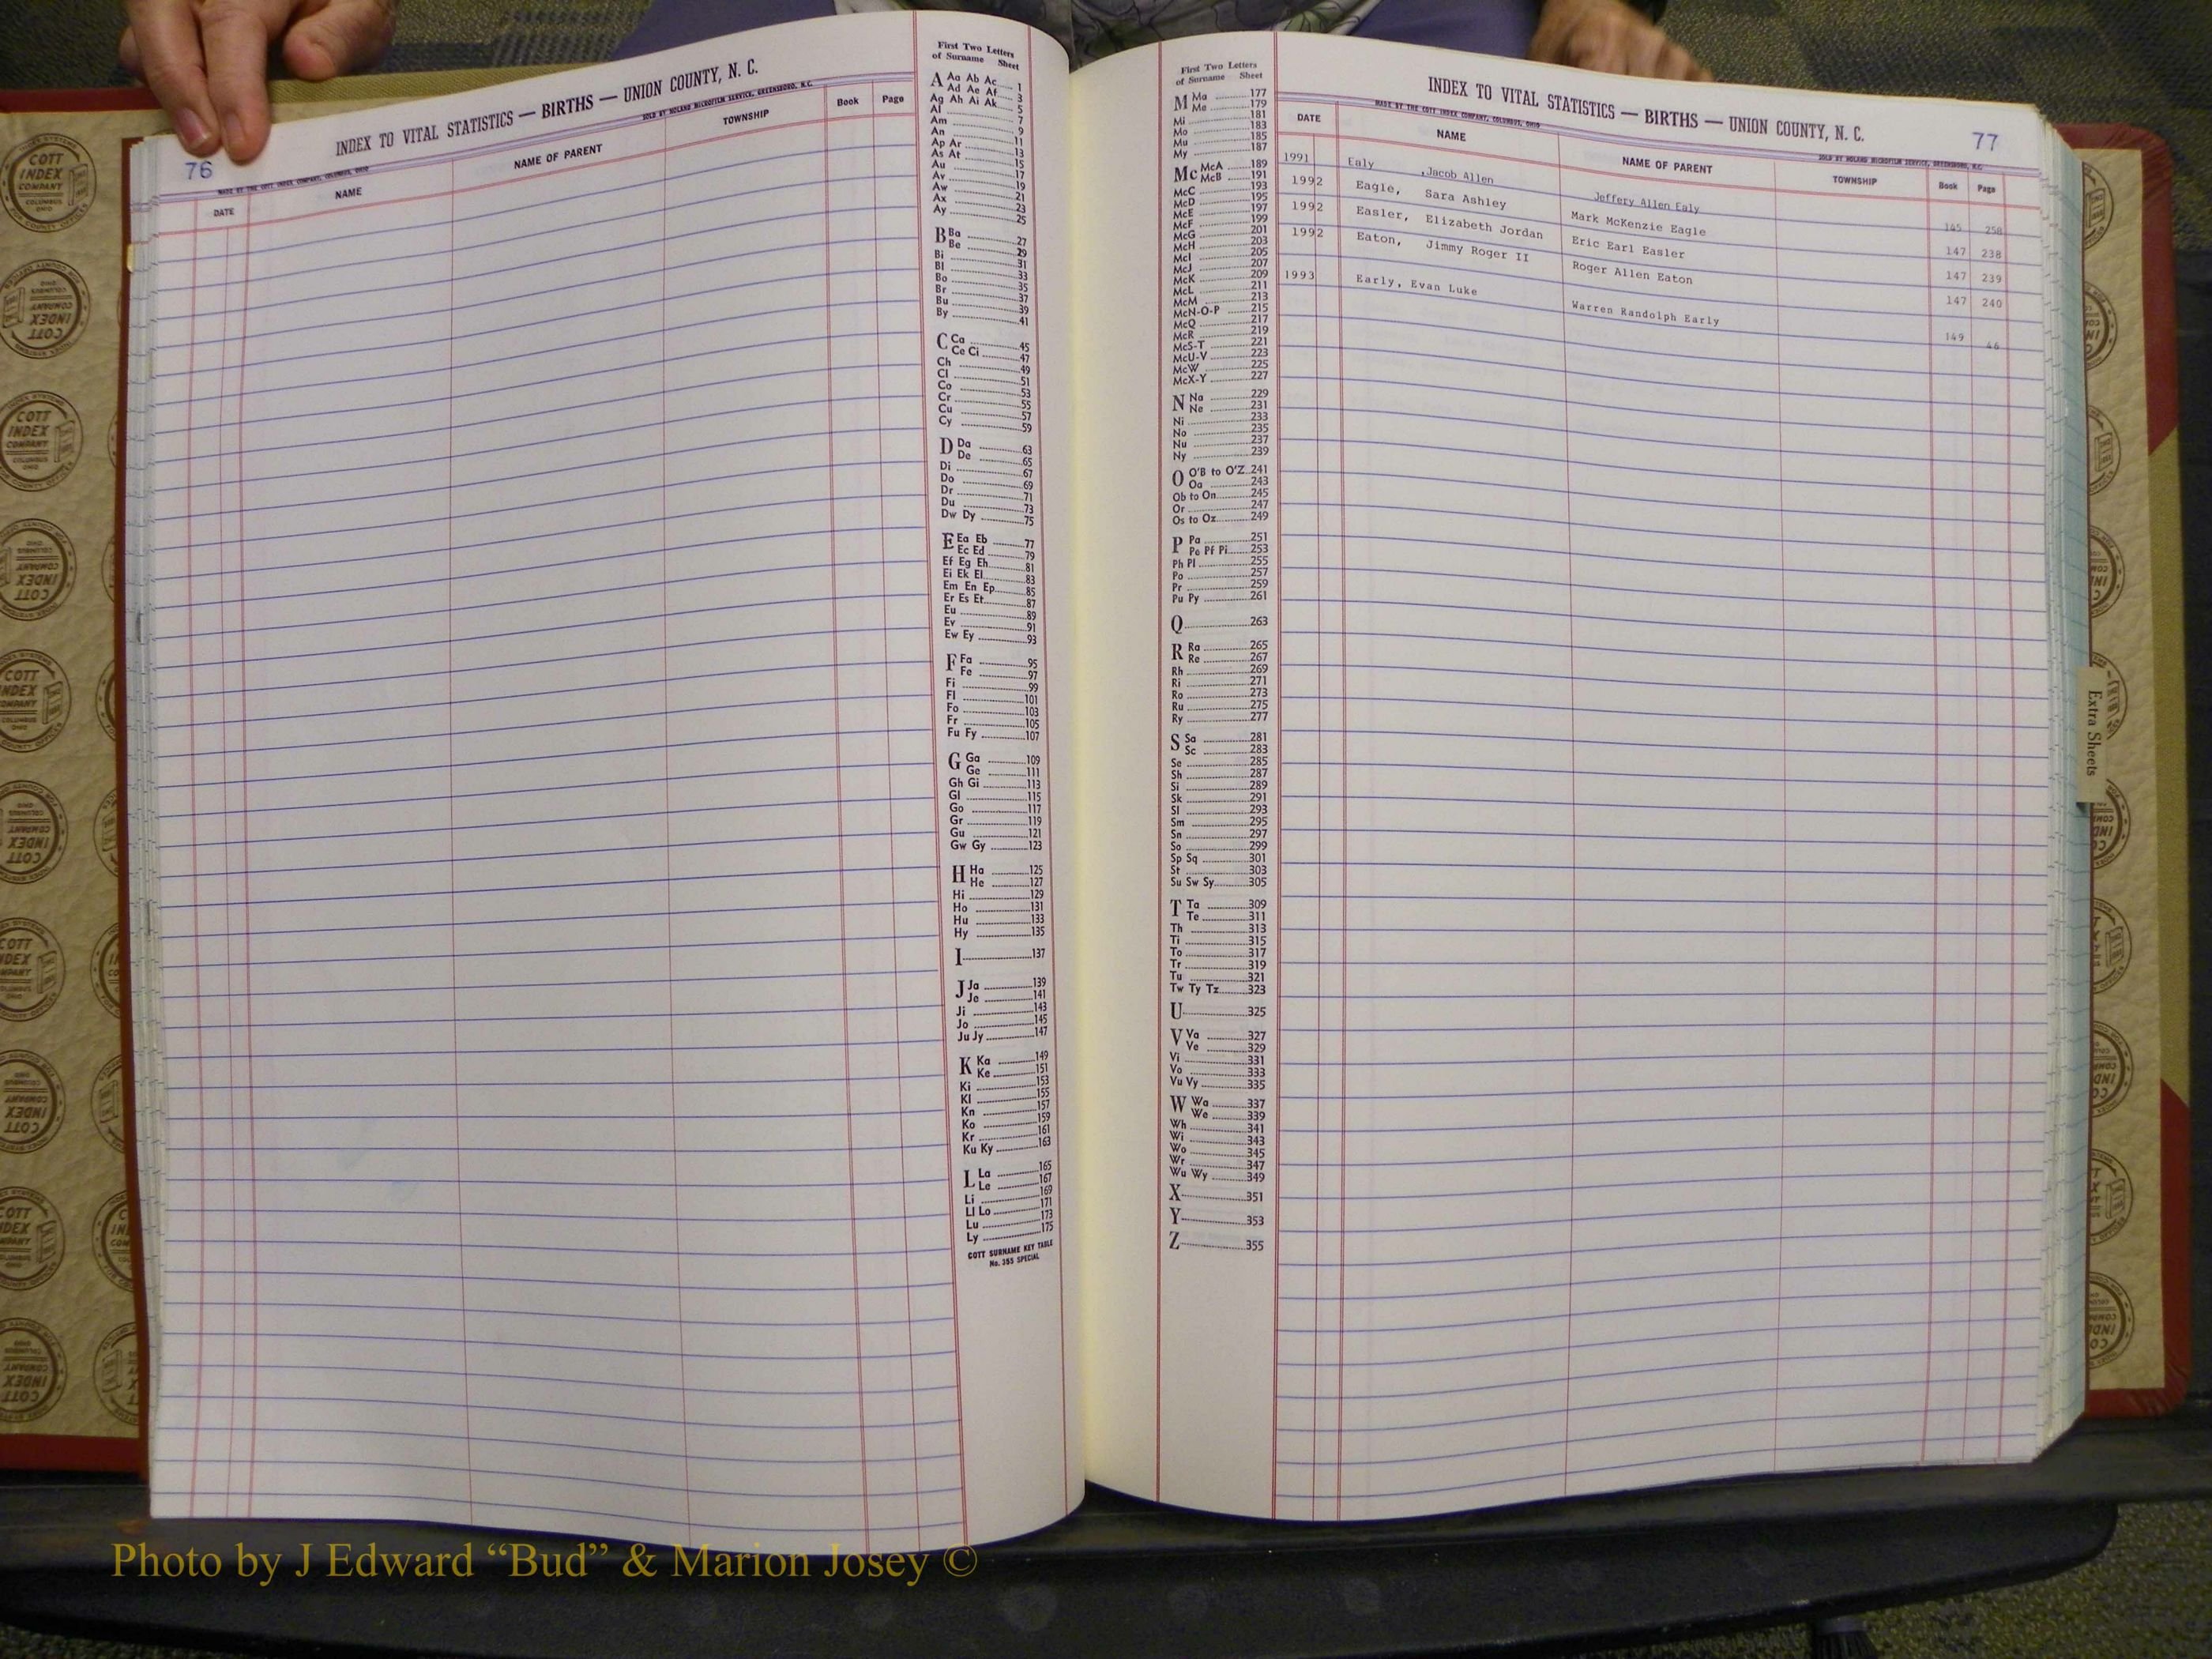 76
INDEX TO VITAL STATISTICS — BIRTHS — UNION COUNTY, N. C.
MADE BY THE COTT INDEX COMPANY, COLUMBUS, OHIO
SOLD BY NOLAND MICROFILM SERVICE, GREENSBORO, N.C.
DATE NAME NAME OF PARENT TOWNSHIP Book Page
First Two Letters
of Surname Sheet
A Aa Ab Ac 1
Ad Ae Af 3
Ag Ah Ai Ak 5
Al 7
Am 9
An 11
Ap Ar 13
As At 15
Au 17
Av 19
Aw 21
Ax 23
Ay 25
B Ba 27
Be 29
Bi 31
Bl 33
Bo 35
Br 37
Bu 39
By 41
C Ca 45
Ce Ci 47
Ch 49
Cl 51
Co 53
Cr 55
Cu 57
Cy 59
D Da 63
De 65
Di 67
Do 69
Dr 71
Du 73
Dw Dy 75
E Ea Eb 77
Ec Ed 79
Ef Eg Eh 81
Ei Ek El 83
Em En Ep 85
Er Es Et 87
Eu 89
Ev 91
Ew Ey 93
F Fa 95
Fe 97
Fi 99
Fl 101
Fo 103
Fr 105
Fu Fy 107
G Ga 109
Ge 111
Gh Gi 113
Gl 115
Go 117
Gr 119
Gu 121
Gw Gy 123
H Ha 125
He 127
Hi 129
Ho 131
Hu 133
Hy 135
I 137
J Ja 139
Je 141
Ji 143
Jo 145
Ju Jy 147
K Ka 149
Ke 151
Ki 153
Kl 155
Kn 157
Ko 159
Kr 161
Ku Ky 163
L La 165
Le 167
Li 169
Ll Lo 171
Lu 173
Ly 175
COTT SURNAME KEY TABLE
No. 355 SPECIAL
First Two Letters
of Surname Sheet
M Ma 177
Me 179
Mi 181
Mo 183
Mu 185
My 187
Mc McA 189
McB 191
McC 193
McD 195
McE 197
McF 199
McG 201
McH 203
McI 205
McJ 207
McK 209
McL 211
McM 213
McN-O-P 215
McQ 217
McR 219
McS-T 221
McU-V 223
McW 225
McX-Y 227
N Na 229
Ne 231
Ni 233
No 235
Nu 237
Ny 239
O O'B to O'Z 241
Oa 243
Ob to On 245
Or 247
Os to Oz 249
P Pa 251
Pe Pf Pi 253
Ph Pl 255
Po 257
Pr 259
Pu Py 261
Q 263
R Ra 265
Re 267
Rh 269
Ri 271
Ro 273
Ru 275
Ry 277
S Sa 281
Sc 283
Se 285
Sh 287
Si 289
Sk 291
Sl 293
Sm 295
Sn 297
So 299
Sp Sq 301
St 303
Su Sw Sy 305
T Ta 309
Te 311
Th 313
Ti 315
To 317
Tr 319
Tu 321
Tw Ty Tz 323
U 325
V Va 327
Ve 329
Vi 331
Vo 333
Vu Vy 335
W Wa 337
We 339
Wh 341
Wi 343
Wo 345
Wr 347
Wu Wy 349
X 351
Y 353
Z 355
INDEX TO VITAL STATISTICS — BIRTHS — UNION COUNTY, N. C.
77
MADE BY THE COTT INDEX COMPANY, COLUMBUS, OHIO
SOLD BY NOLAND MICROFILM SERVICE, GREENSBORO, N.C.
DATE NAME NAME OF PARENT TOWNSHIP Book Page
1991 Ealy ,Jacob Allen Jeffery Allen Ealy 145 258
1992 Eagle, Sara Ashley Mark McKenzie Eagle 147 238
1992 Easler, Elizabeth Jordan Eric Earl Easler 147 239
1992 Eaton, Jimmy Roger II Roger Allen Eaton 147 240
1993 Early, Evan Luke Warren Randolph Early 149 46
Extra Sheets
COTT
INDEX
COMPANY
COLUMBUS
OHIO
Photo by J Edward “Bud” & Marion Josey ©